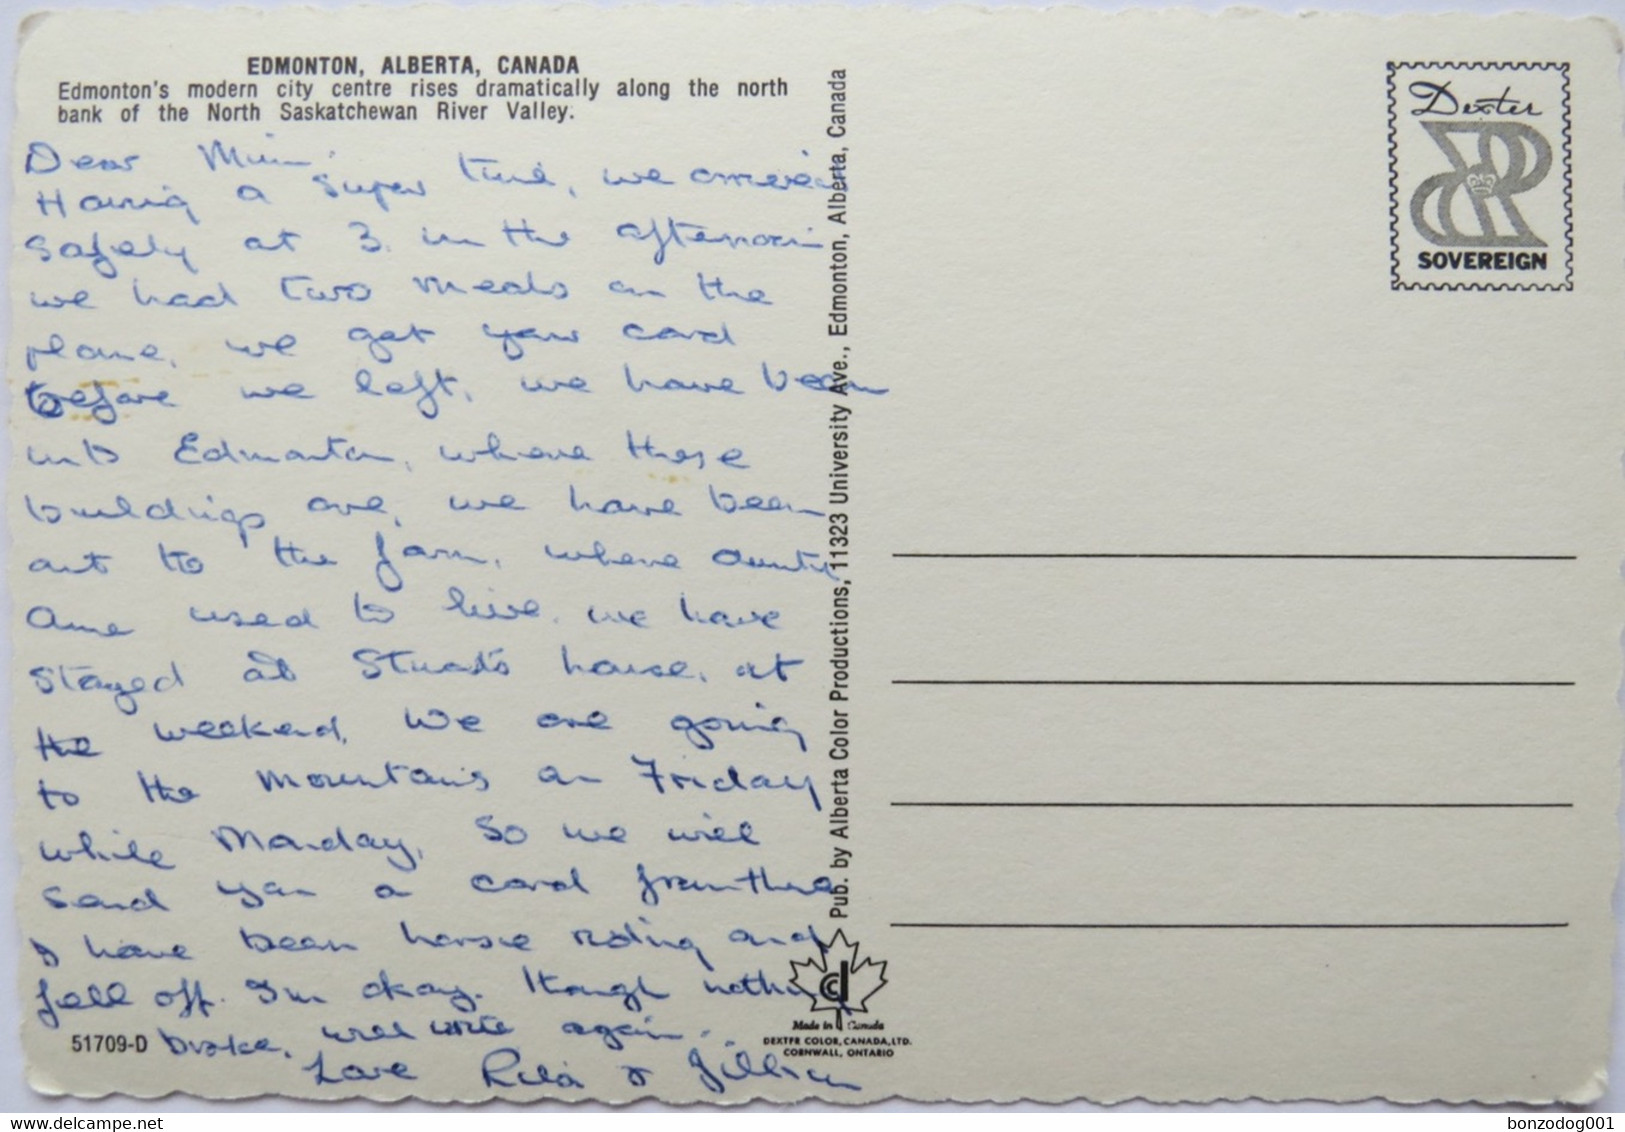 EDMONTON, ALBERTA, CANADA
Edmonton's modern city centre rises dramatically along the north
bank of the North Saskatchewan River Valley.
Dear Mum,
Having a super time, we arrived
safely at 3 in the afternoon
we had two meals on the
plane, we got your card
before we left, we have been
into Edmonton, where these
buildings are, we have been
out to the farm, where Aunty
Anne used to live, we have
stayed at Stuarts house, at
the weekend, We are going
to the mountains on Friday
while Monday, so we will
send you a card from there
I have been horse riding and
fell off. I'm okay. though nothing
broke, will write again.
Love Rita & Gillian
51709-D
Pub. by Alberta Color Productions, 11323 University Ave., Edmonton, Alberta, Canada
Made in Canada
DEXTER COLOR, CANADA, LTD.
CORNWALL, ONTARIO
Dexter
SOVEREIGN
delcampe.net
bonzodog001